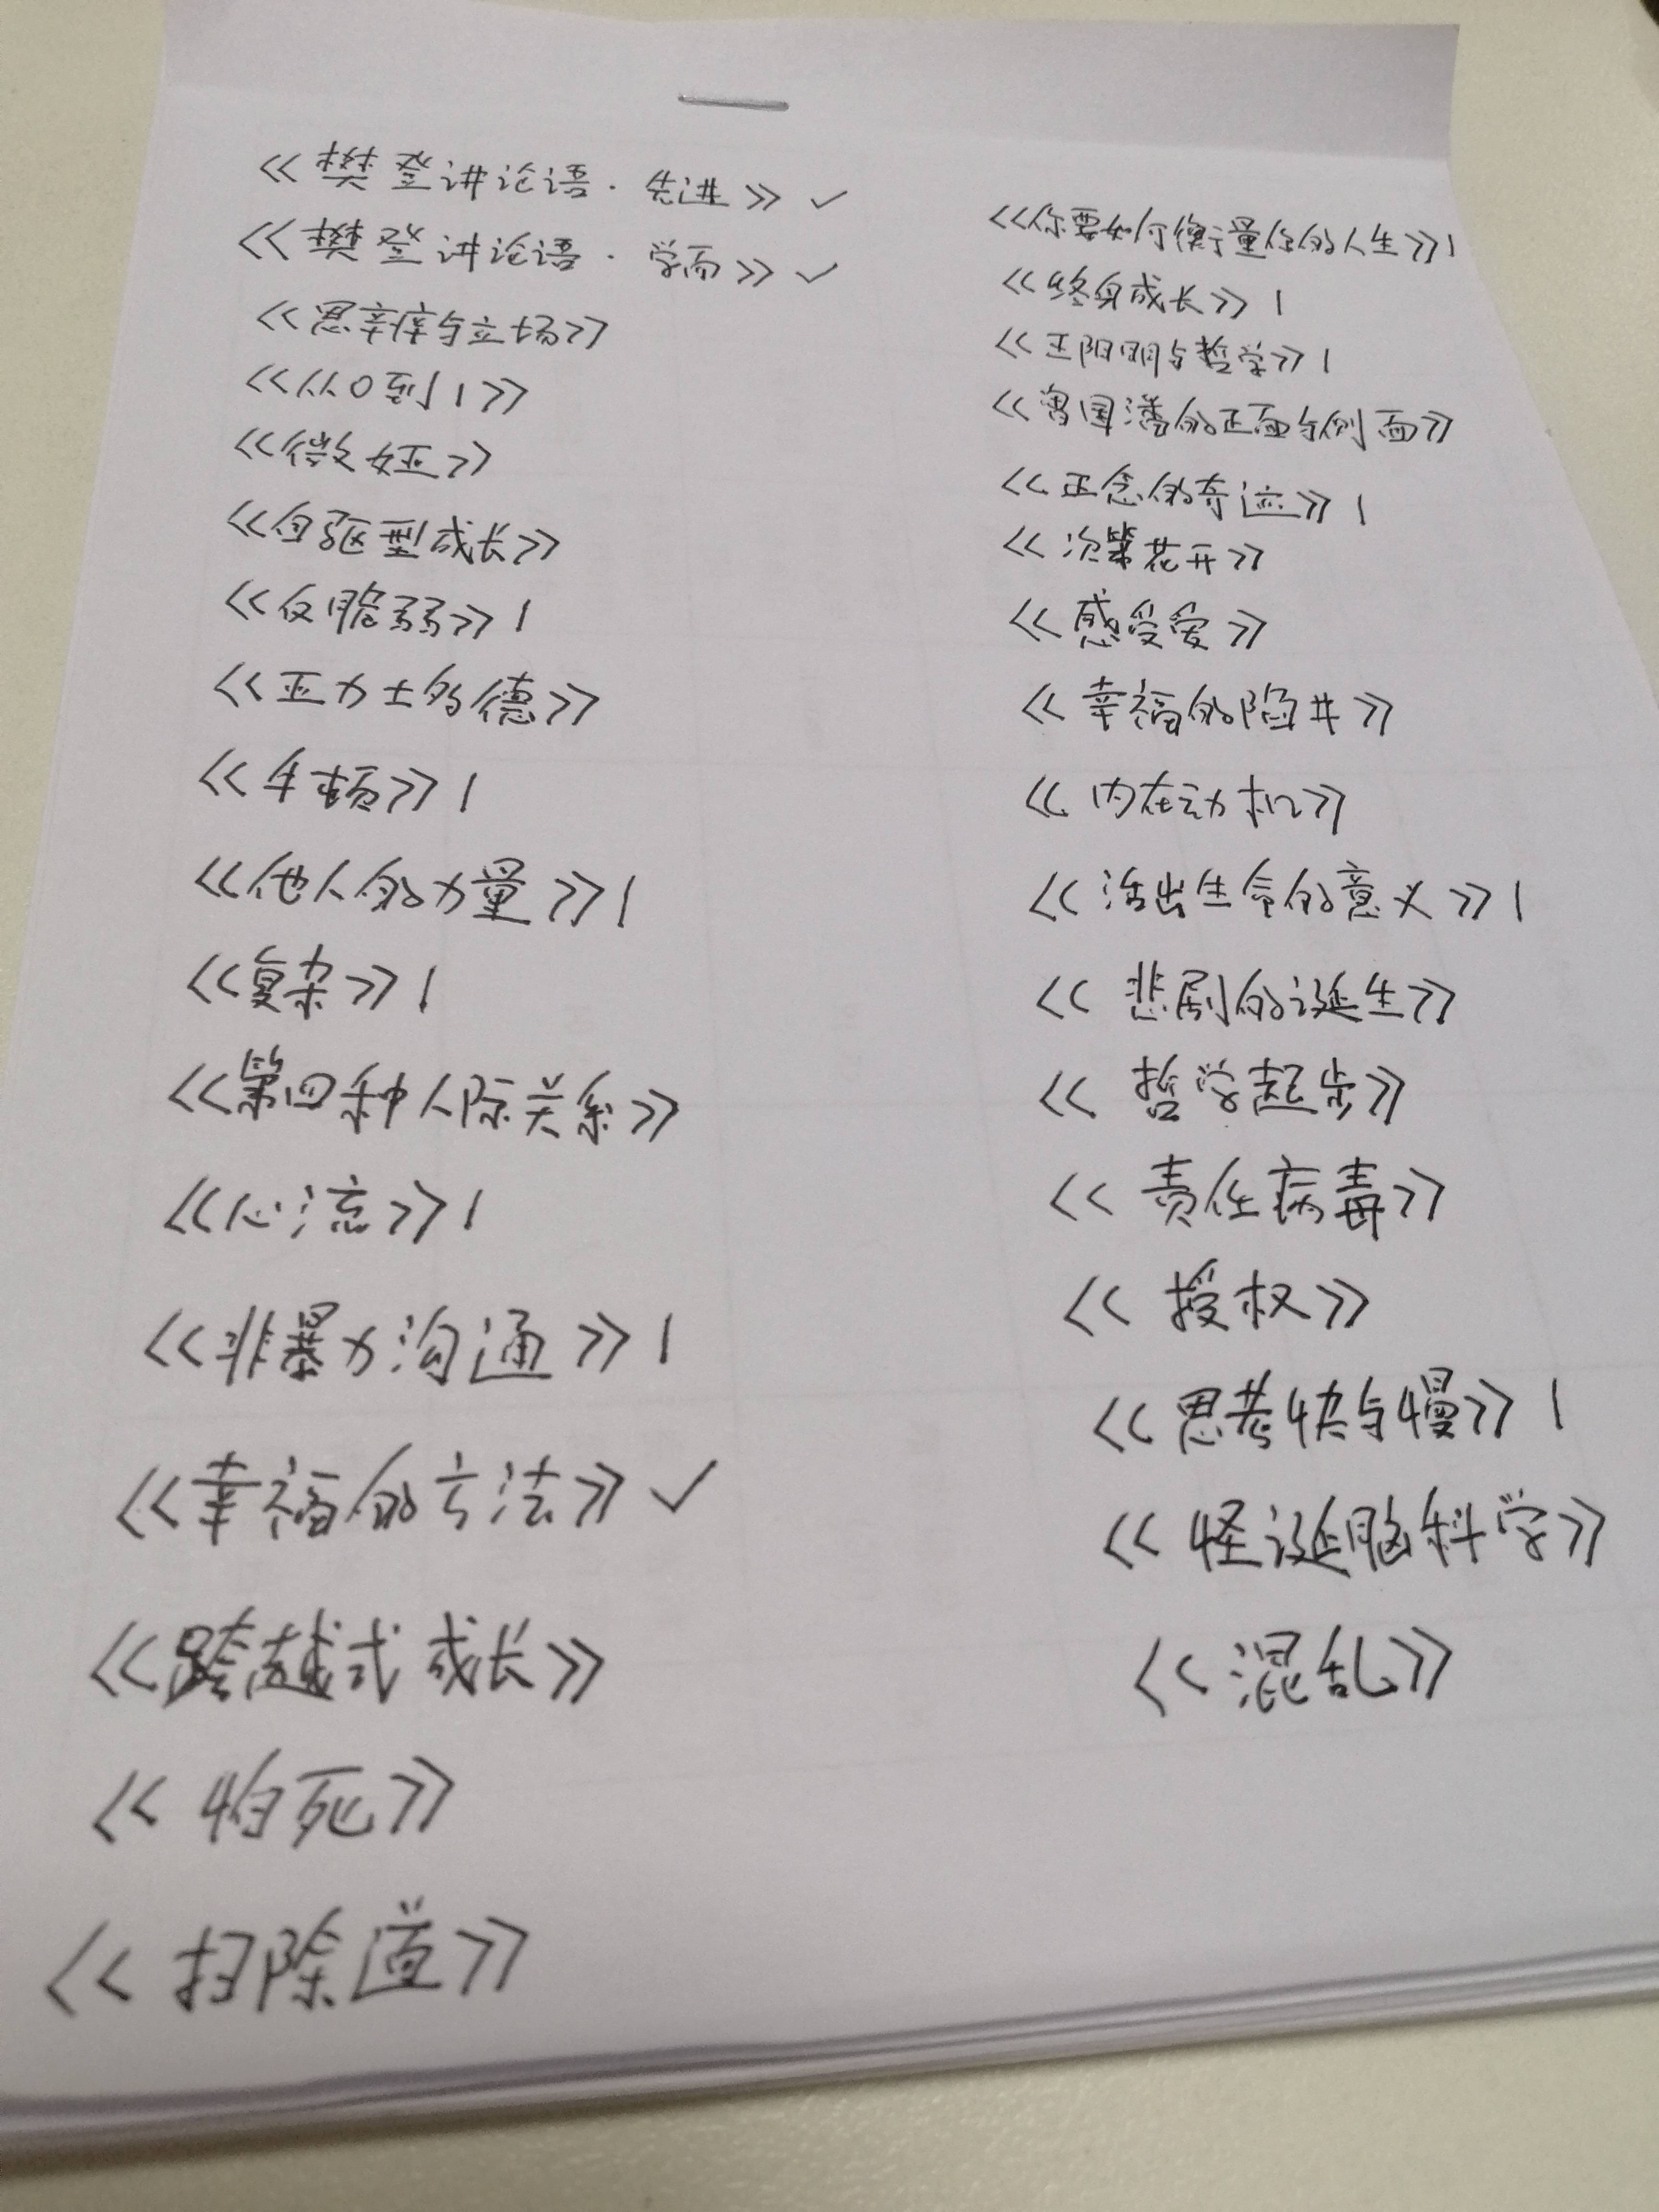 <<樊登讲论语·先进>> ✓
<<樊登讲论语·学而>> ✓
<<思辛庠与立场>>
<<从0到1>>
<<微娅>>
<<自驱型成长>>
<<反脆弱>> |
<<亚力士多德>>
<<牛顿>> |
<<他人的力量>> |
<<复杂>> |
<<第四种人际关系>>
<<心流>> |
<<非暴力沟通>> |
<<幸福的方法>> ✓
<<跨越式成长>>
<<怕死>>
<<扫除道>>
<<你要如何衡量你的人生>> |
<<终身成长>> |
<<王阳明与哲学>> |
<<曾国潘的正面与侧面>>
<<正念的奇迹>> |
<<次第花开>>
<<感受爱>>
<<幸福的陷井>>
<<内在动机>>
<<活出生命的意义>> |
<<悲剧的诞生>>
<<哲学起步>>
<<责任病毒>>
<<授权>>
<<思考快与慢>> |
<<怪诞脑科学>>
<<混乱>>